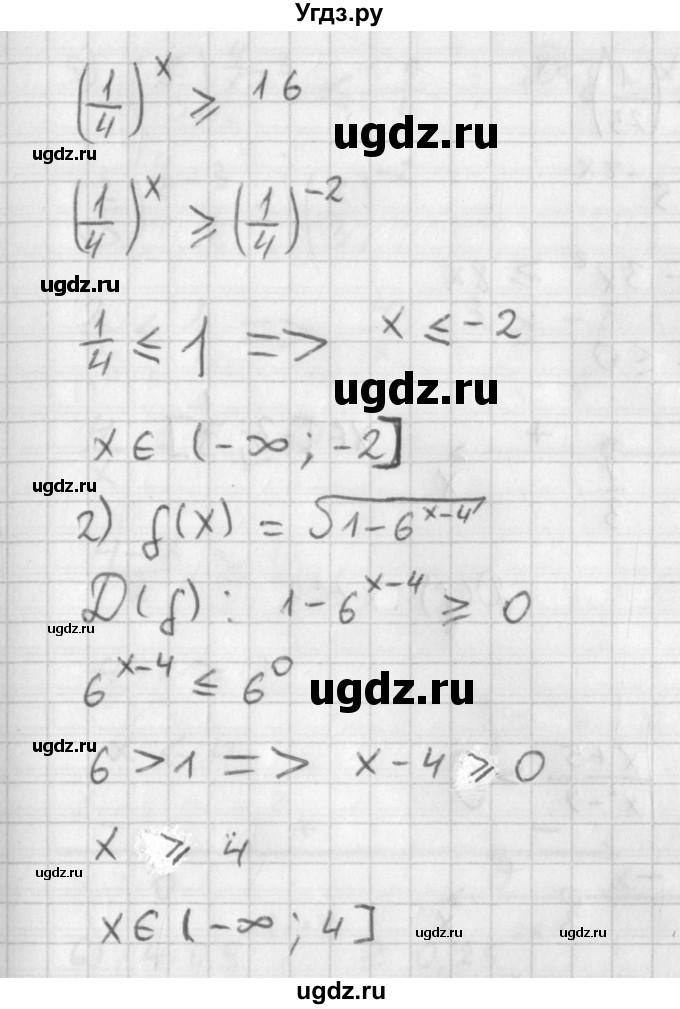 Угдз.ру
(1/4)^x ⩾ 16
ugdz.ru
ugdz.ru
(1/4)^x ⩾ (1/4)^-2
ugdz.ru
1/4 ≤ 1 => x ≤ -2
ugdz.ru
x ∈ (-∞; -2]
ugdz.ru
2) f(x) = √(1-6^(x-4))
D(f): 1-6^(x-4) ⩾ 0
ugdz.ru
6^(x-4) ≤ 6^0
ugdz.ru
ugdz.ru
6 > 1 => x - 4 ⩾ 0
x ⩾ 4
ugdz.ru
x ∈ (-∞; 4]
ugdz.ru ugdz.ru
ugdz.ru